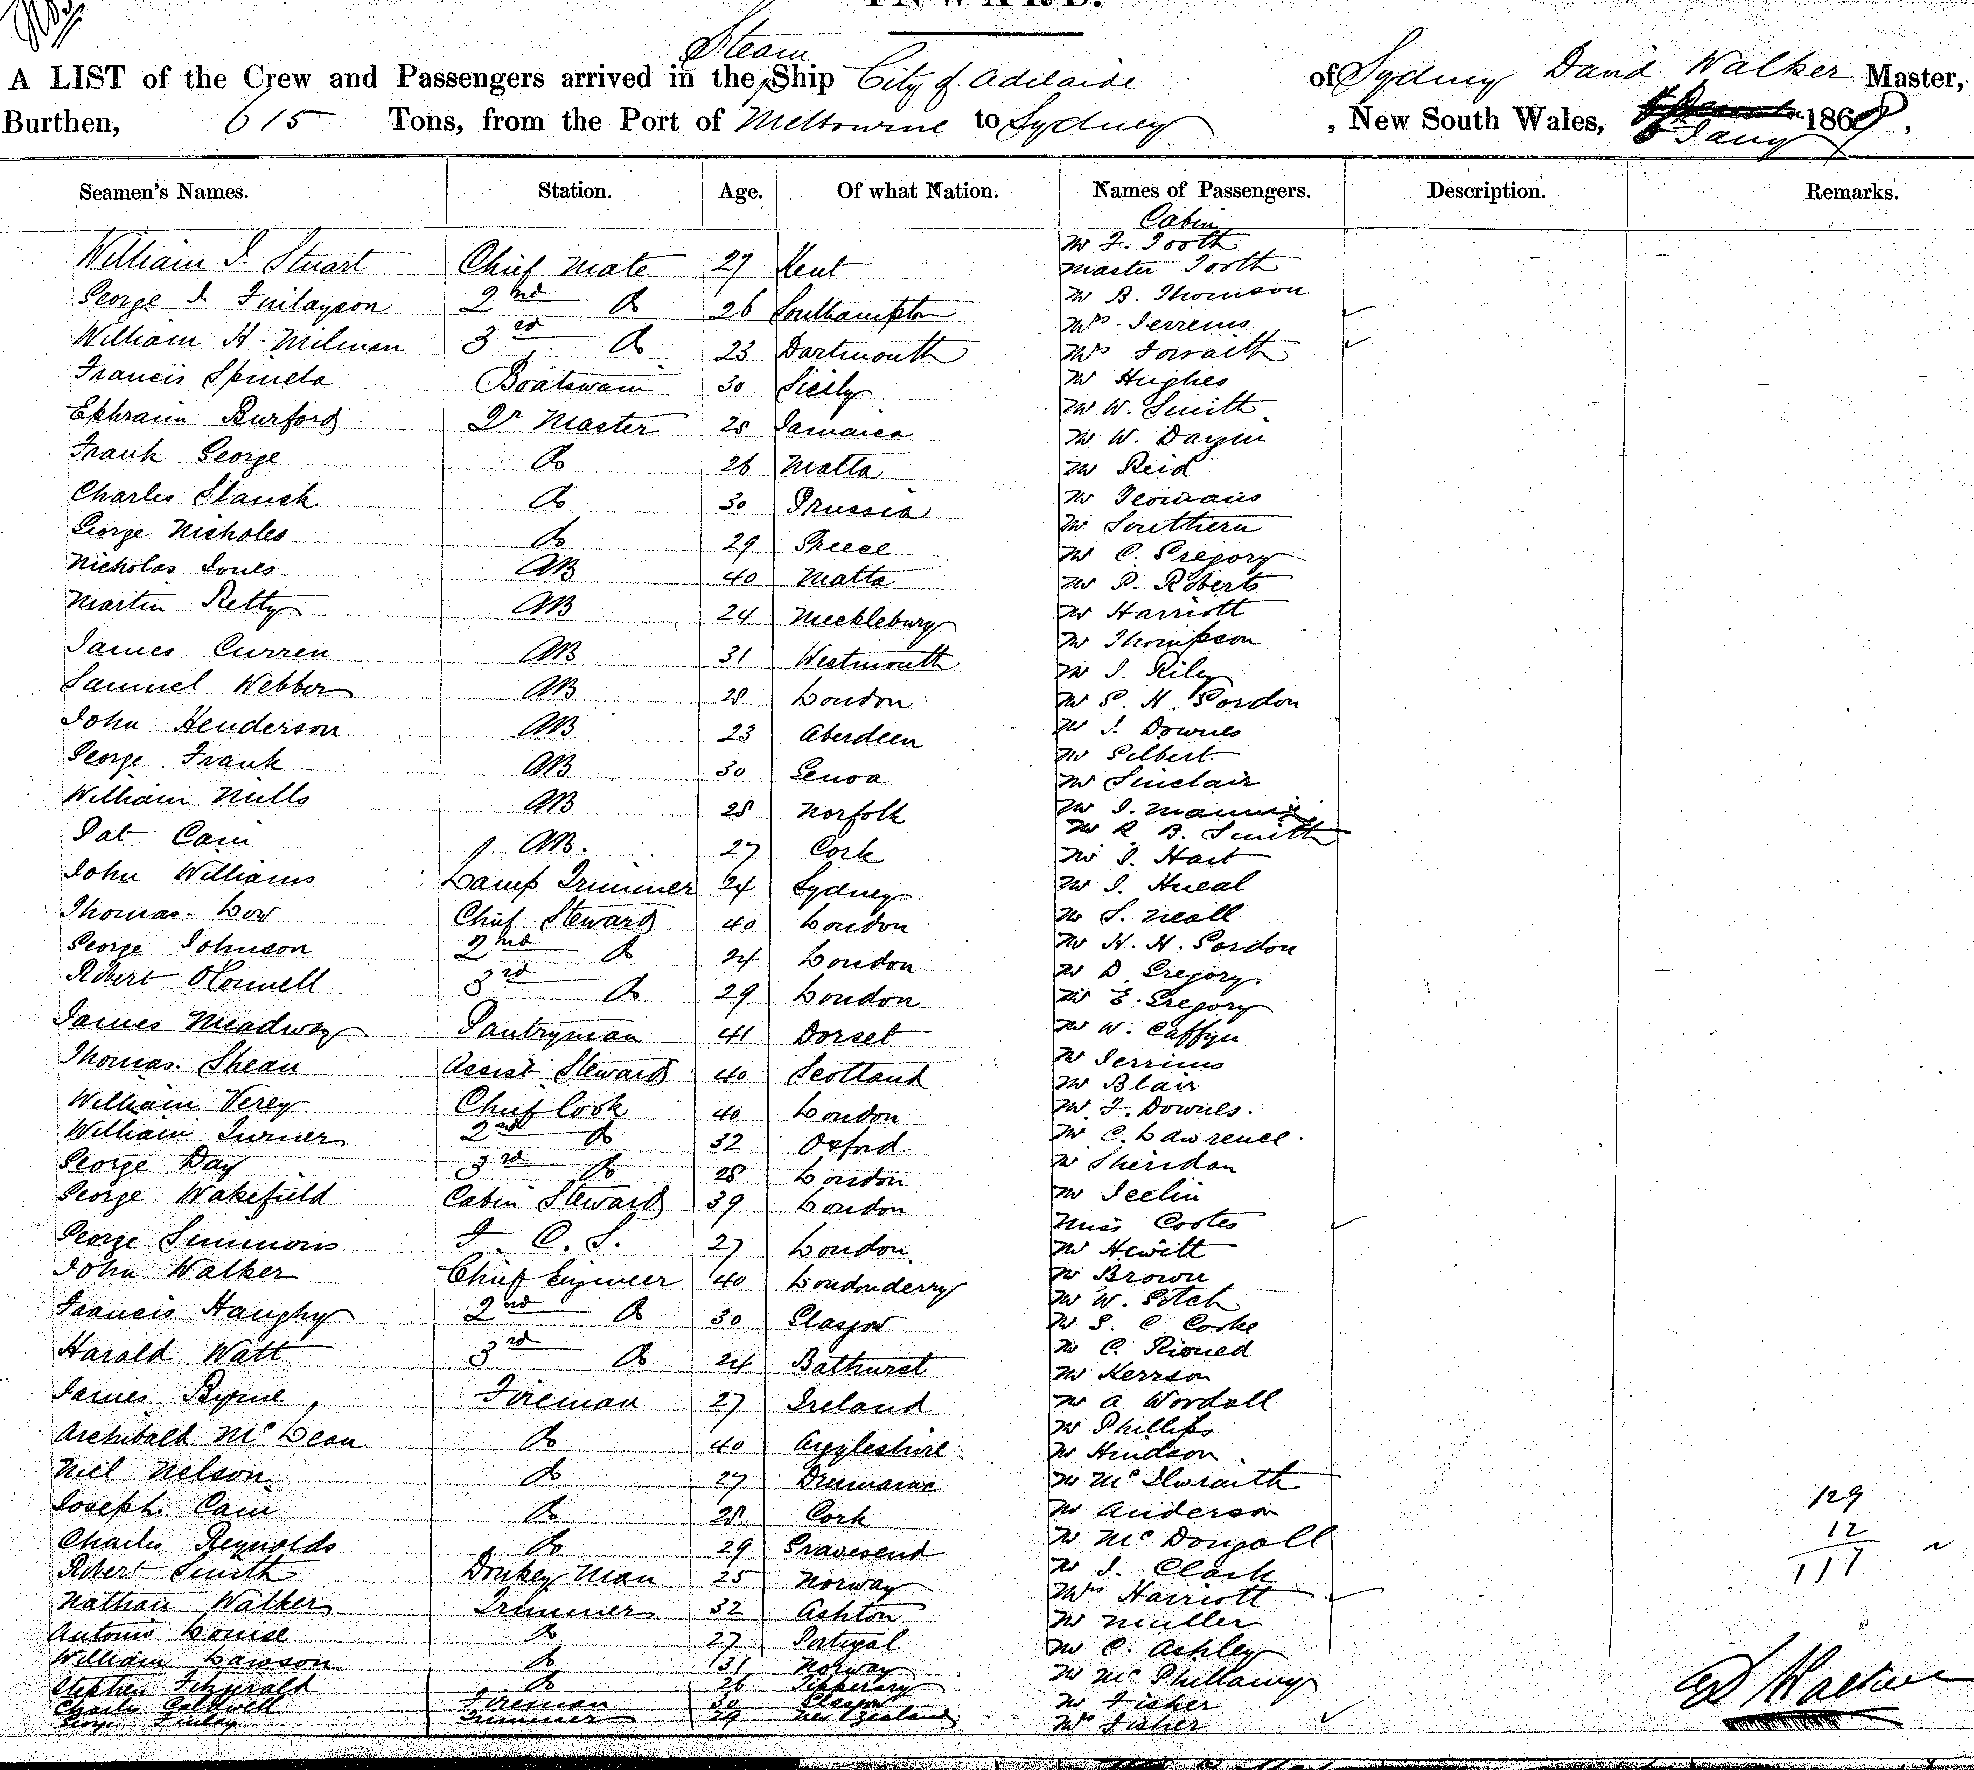 INWARD.
Steam
A LIST of the Crew and Passengers arrived in the Ship City of Adelaide of Sydney David Walker Master,
Burthen, 615 Tons, from the Port of Melbourne to Sydney, New South Wales, Jany 1869.
Seamen's Names. Station. Age. Of what Nation. Names of Passengers. Description. Remarks.
Cabin
William J. Stuart Chief Mate 27 Kent Mr F. Tooth
Master Tooth
George J. Finlayson 2nd Do 26 Southampton Mr B. Thomson
Mrs Terreins
William H. Milman 3rd Do 23 Dartmouth Mrs Forsaith
Francis Spineto Boatswain 30 Sicily Mr Hughes
Mr W. Smith
Ephraim Burford Qr Master 28 Jamaica Mr W. Dargin
Frank George Do 26 Malta Mr Reid
Charles Stansh Do 30 Prussia Mr Yeomans
George Nicholes Do 29 Greece Mr Southern
Mr C. Gregory
Nicholas Joules AB 40 Malta Mr P. Roberts
Martin Retty AB 24 Mecklebury Mr Harriott
James Curren AB 31 Westmouth Mr Thompson
Mr J. Riley
Samuel Webber AB 28 London Mr G. H. Gordon
John Henderson AB 23 Aberdeen Mr J. Downes
George Frank AB 30 Genoa Mr Gilbert
Mr Sinclair
William Mills AB 28 Norfolk Mr J. Manning
Mr R. B. Smith
Pat Cain AB. 27 Cork Mr J. Hart
John Williams Lamp Trimmer 24 Sydney Mr J. Hueal
Thomas Low Chief Steward 40 London Mr S. Neall
George Johnson 2nd Do 24 London Mr H. H. Gordon
Mr D. Gregory
Robert OConnell 3rd Do 29 London Mr E. Gregory
James Meadway Pantryman 41 Dorset Mr W. Caffyn
Mr Terrins
Thomas Shean Assist Steward 40 Scotland Mr Blair
William Verey Chief Cook 40 London Mr F. Downes.
William Turner 2nd Do 32 Oxford Mr C. Lawrence.
George Day 3rd Do 28 London Mr Sheridan
George Wakefield Cabin Steward 39 London Mr Teelin
Miss Cootes
George Simmons F. C. S. 27 London Mr Hewitt
John Walker Chief Engineer 40 Londonderry Mr Brown
Mr W. Gotch
Francis Haughy 2nd Do 30 Glasgow Mr G. C. Cooke
Harald Watt 3rd Do 24 Bathurst Mr C. Pioned
Mr Kerrson
James Byrne Fireman 27 Ireland Mr A Wordall
Mr Phillips
Archibald McLean Do 40 Argyleshire Mr Hudson
Niel Nelson Do 27 Mr McIlwraith
Joseph Cain Do 28 Cork Mr Anderson 129
Charles Reynolds Do 29 Gravesend Mr McDougall 12
Robert Smith Donkey Man 25 Norway Mr J. Clark 117
Nathan Walker Trimmer 32 Ashton Mrs Harriott
Antonio Louise Do 27 Portugal Mr Muller
Mr C. Ashley
William Lawson Do 31 Norway Mr McPhillamy
Stephen Fitzgerald Do 26 Tipperary
Charles Caldwell Fireman 30 Glasgow Mr Fisher
George Finlay Trimmer 29 New Zealand Mrs Fisher
D Walker